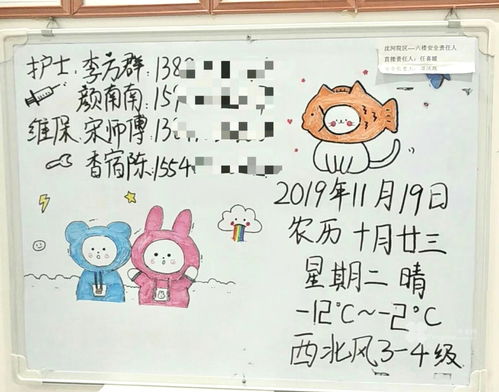 沈阿院区一六楼安全责任人
直接责任人:任喜媚
护士:李为群:138
颜南南:15
维保:宋师傅:13
香宿陈:1554
2019年11月19日
农历十月廿三
星期二 晴
-12℃~-2℃
西北风3-4级